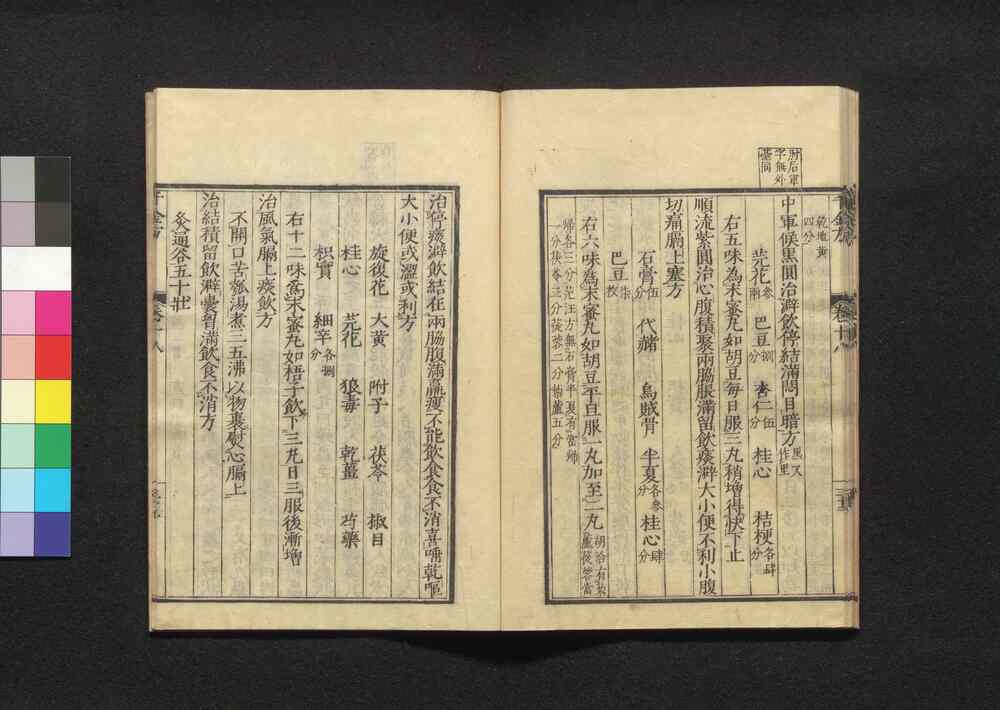 乾地黃四分
中軍候黑圓治澼飲停結滿悶目暗方黑又作里
芫花叁兩 巴豆捌分 杏仁伍分 桂心 桔梗各肆分
右五味為末蜜丸如胡豆每日服三丸稍增得快下止
順流紫圓治心腹積聚兩脇脹滿留飲痰澼大小便不利小腹
切痛膈上塞方
石膏伍分 代赭 烏賊骨 半夏各叁分 桂心肆分
巴豆柒枚
右六味為末蜜丸如胡豆平旦服一丸加至二丸
歸各三分范汪方無石膏半夏有當歸
一分茯苓三分蓯蓉二分藜蘆五分
治停痰澼飲結在兩脇腹滿羸瘦不能飲食食不消喜唾乾嘔
大小便或澀或利方
旋復花 大黃 附子 茯苓 椒目
桂心 芫花 狼毒 乾薑 芍藥
枳實 細辛各捌分
右十二味為末蜜丸如梧子飲下三丸日三服後漸增
治風氣膈上痰飲方
不開口苦瓠湯煮三五沸以物裹熨心膈上
治結積留飲澼囊胷滿飲食不消方
灸通谷五十壯